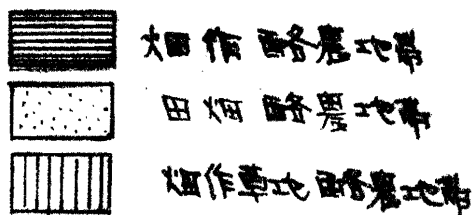 畑作酪農地帯
田畑酪農地帯
畑作草地酪農地帯